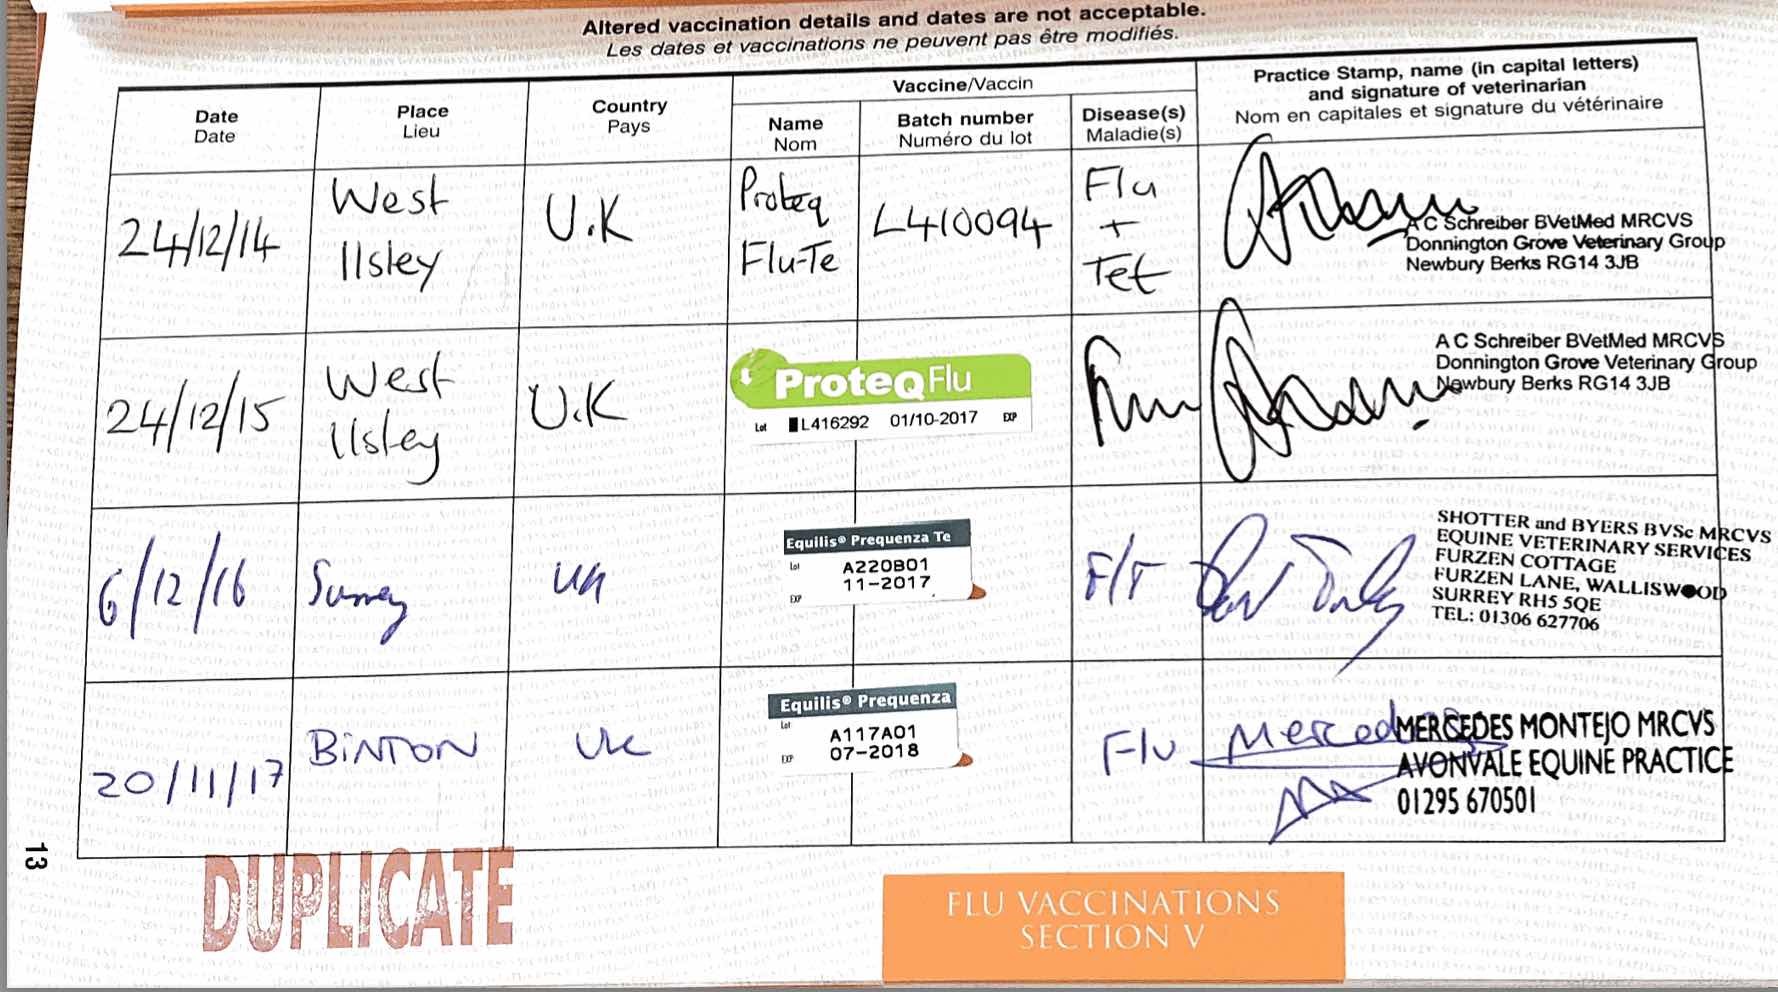 Altered vaccination details and dates are not acceptable.
Les dates et vaccinations ne peuvent pas être modifiés.
Date
Date
Place
Lieu
Country
Pays
Vaccine/Vaccin
Name
Nom
Batch number
Numéro du lot
Disease(s)
Maladie(s)
Practice Stamp, name (in capital letters)
and signature of veterinarian
Nom en capitales et signature du vétérinaire
24/12/14
West
Ilsley
U.K
Proteq
Flu-Te
L410094
Flu
+
Tet
A C Schreiber BVetMed MRCVS
Donnington Grove Veterinary Group
Newbury Berks RG14 3JB
24/12/15
West
Ilsley
U.K
ProteqFlu
Lot L416292 01/10-2017 EXP
A C Schreiber BVetMed MRCVS
Donnington Grove Veterinary Group
Newbury Berks RG14 3JB
6/12/16
Surrey
UK
Equilis® Prequenza Te
Lot A220B01
EXP 11-2017
F/T
SHOTTER and BYERS BVSc MRCVS
EQUINE VETERINARY SERVICES
FURZEN COTTAGE
FURZEN LANE, WALLISWOOD
SURREY RH5 5QE
TEL: 01306 627706
20/11/17
BINTON
UK
Equilis® Prequenza
Lot A117A01
EXP 07-2018
Flu
Mercedes
MERCEDES MONTEJO MRCVS
AVONVALE EQUINE PRACTICE
01295 670501
13
DUPLICATE
FLU VACCINATIONS
SECTION V